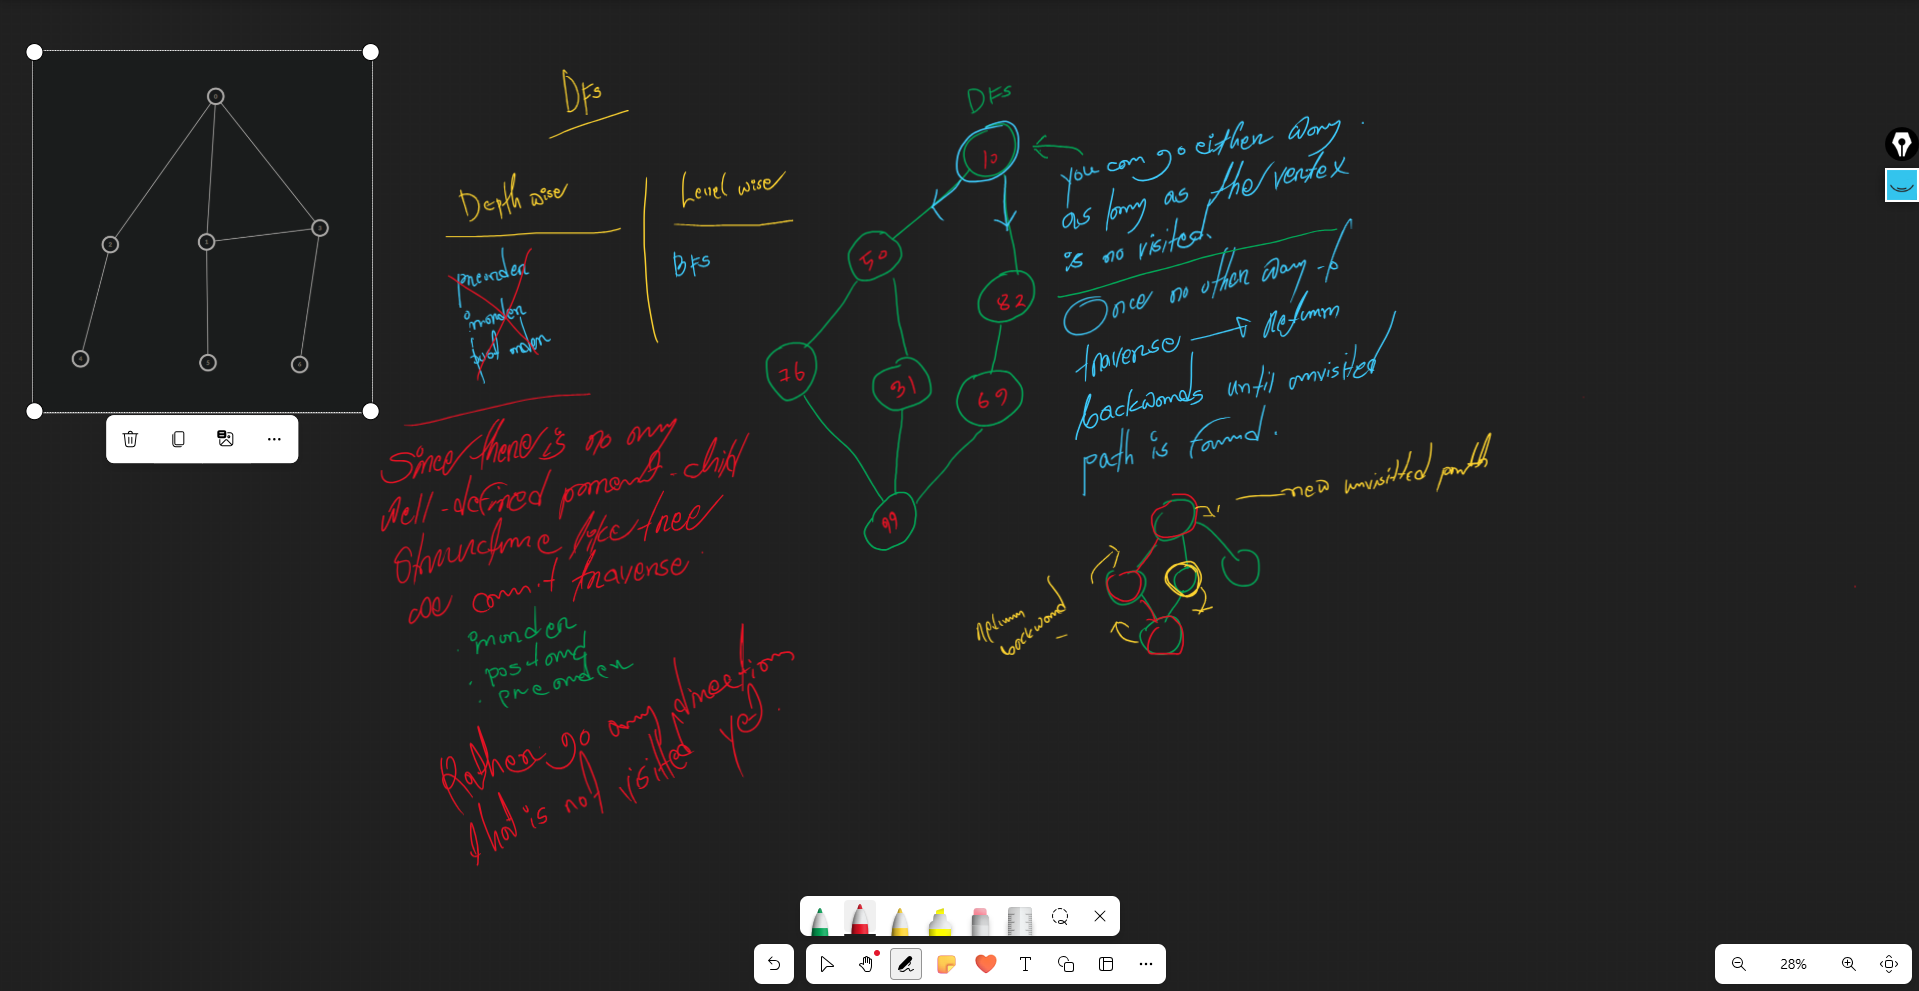 0
2
1
3
4
5
6
DFs
Depth wise
Level wise
preorder
inorder
BFS
Since there is no any
Well-defined parent-child
Structure like tree
We can't traverse
. inorder
. postord
. preorder
Rather go any direction
that is not visitted yet.
DFs
10
50
82
76
31
69
99
you can go either way.
as long as the vertex
is no visited.
Once no other way to
traverse → Return
backwards until unvisited
path is found.
new unvisitted path
Return
backward
28%